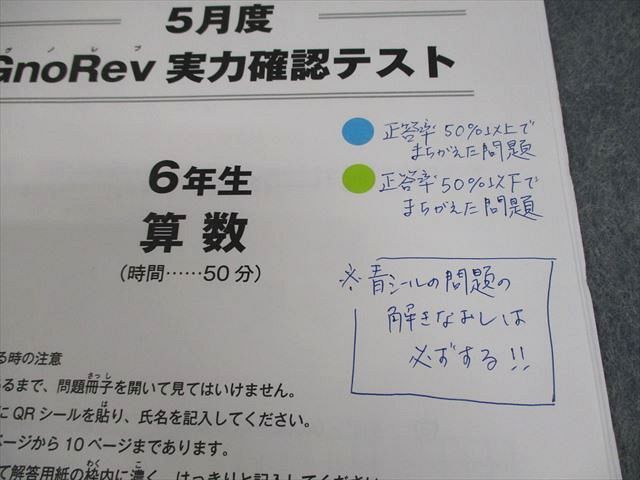 5月度
グノレブ
GnoRev 実力確認テスト
正答率 50%以上で
まちがえた問題
6年生
正答率 50%以下で
まちがえた問題
算数
(時間……50分)
※ 青シールの問題の
解きなおしは
必ずする!!
る時の注意
るまで、問題冊子を開いて見てはいけません。
にQRシールを貼り、氏名を記入してください。
ページから10ページまであります。
て解答用紙の枠内に濃く、はっきりと記入してください